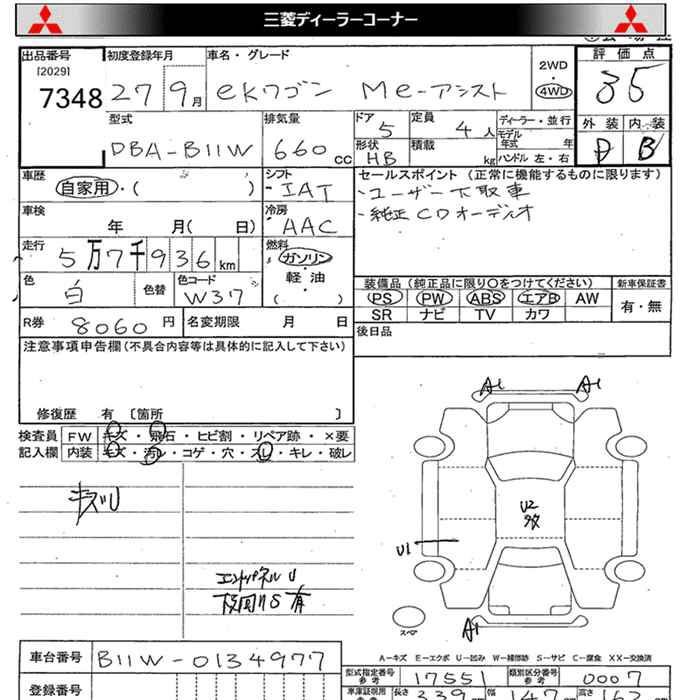 三菱ディーラーコーナー
出品番号 初度登録年月 車名・グレード 2WD 評価点
[2029]
7348 27 9月 ekワゴン Me-アシスト 4WD 35
型式 排気量 ドア 定員 ディーラー・並行 外装 内装
DBA-B11W 660cc 5 4人 モデル年式 年 D B
形状 積載 ハンドル 左・右
HB kg
車歴 シフト セールスポイント (正常に機能するものに限ります)
自家用・( ) IAT ・ユーザー下取車
車検 冷房 ・純正CDオーディオ
年 月( 日) AAC
走行 燃料
5万7千936km ガソリン
軽油
( )
色 色替 色コード 装備品 (純正品に限り○をつけてください) 新車保証書
白 W37 PS PW ABS エアB AW 有・無
SR ナビ TV カワ
R券 8060円 名変期限 月 日 後日品
注意事項申告欄(不具合内容等は具体的に記入して下さい)
修復歴 有 〔箇所 〕
検査員 FW キズ・飛石・ヒビ割・リペア跡・×要
記入欄 内装 キズ・汚レ・コゲ・穴・スレ・キレ・破レ
A1 A1
キズU
U2
多
U1
エンドパネルU
下回りS有
スペア
A1
A-キズ E-エクボ U-凹み W-補修跡 S-サビ C-腐食 XX-交換済
車台番号 B11W-0134977
型式指定番号 参考 17551 類別区分番号 参考 0007
登録番号
車庫証明用 参考 長さ 339 幅 147 高さ 162